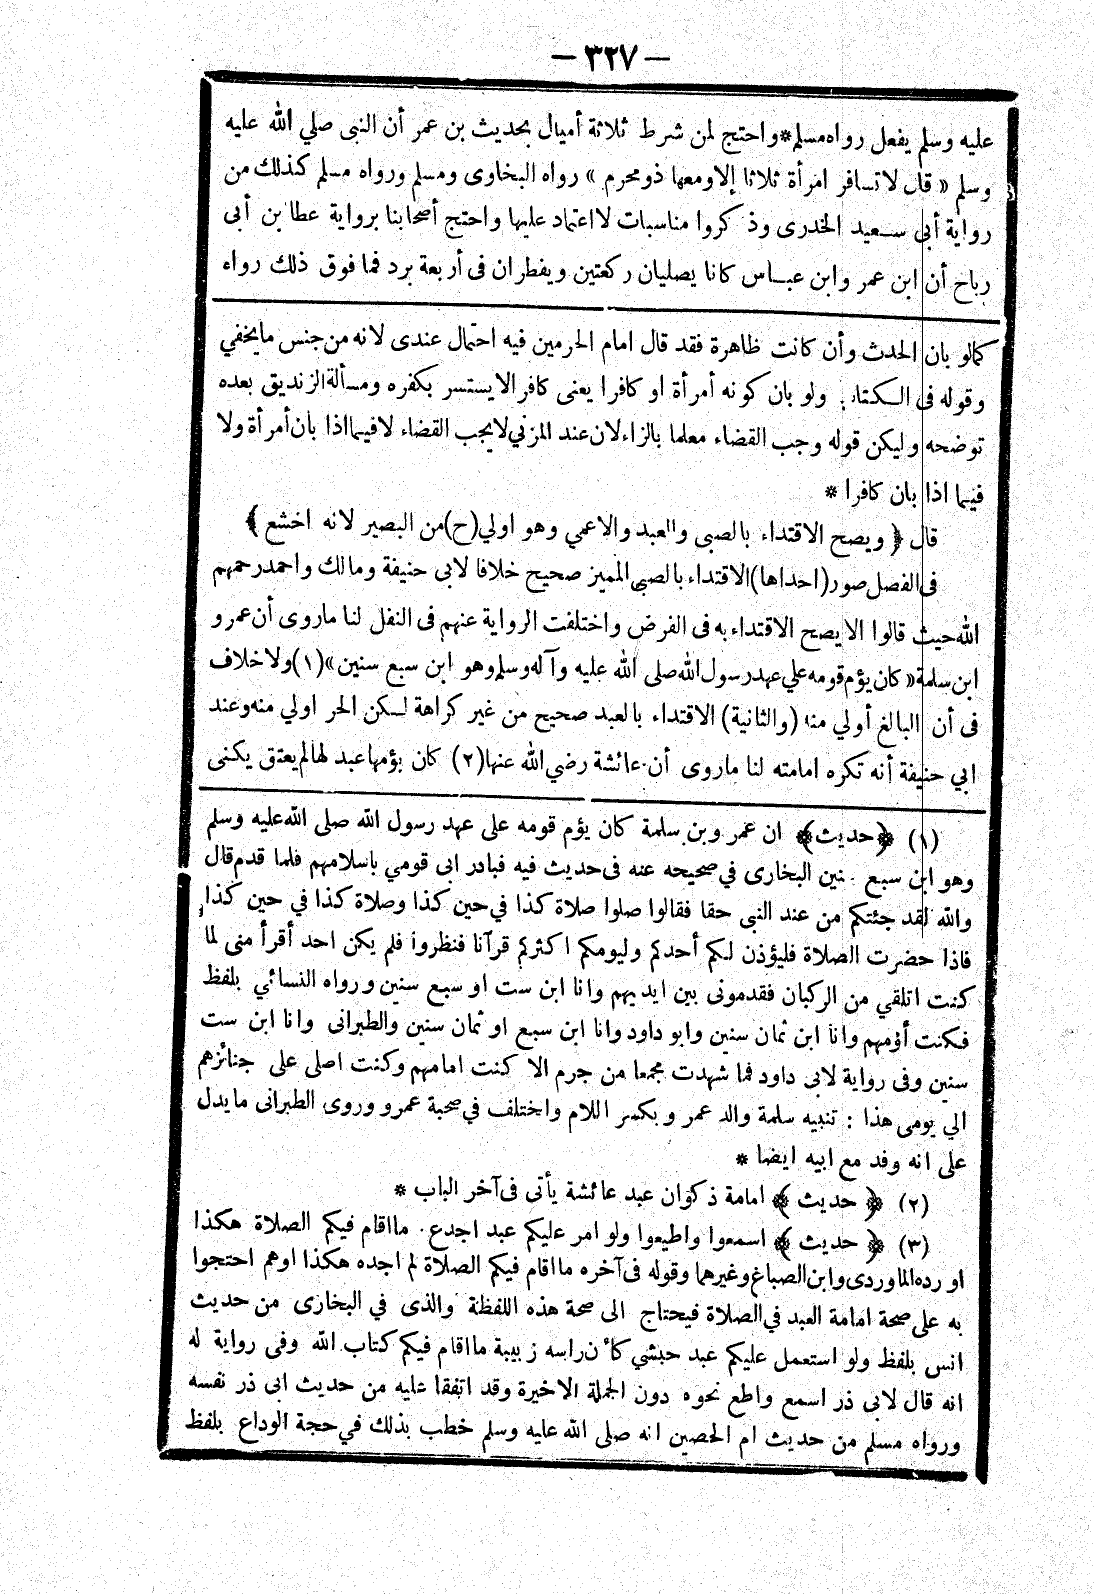 — ٣٢٧ —
عليه وسلم يفعل رواه مسلم * واحتج لمن شرط ثلاثة أميال بحديث بن عمر أن النبي صلي الله عليه
وسلم « قال لا تسافر امرأة ثلاثا إلا ومعها ذو محرم » رواه البخاوى ومسلم ورواه مسلم كذلك من
رواية أبي سعيد الخدرى وذكروا مناسبات لا اعتماد عليها واحتج أصحابنا برواية عطا بن أبى
رباح أن ابن عمر وابن عباس كانا يصليان ركعتين ويفطران فى أربعة برد فما فوق ذلك رواه
كمالو بان الحدث وأن كانت ظاهرة فقد قال امام الحرمين فيه احتمال عندى لانه من جنس ما يخفي
وقوله فى الكتاب ولو بان كونه أمرأة او كافرا يعنى كافر الا يستسر بكفره ومسألة الزنديق بعده
توضحه وليكن قوله وجب القضاء معلما بالزاء لان عند المزني لا يجب القضاء لا فيما اذا بان أمرأة ولا
فيما اذا بان كافرا *
قال ﴿ ويصح الاقتداء بالصبى والعبد والاعمي وهو اولي (ح) من البصير لانه اخشع ﴾
فى الفصل صور (احداها) الاقتداء بالصبي المميز صحيح خلافا لابى حنيفة ومالك واحمد رحمهم
الله حيث قالوا الا يصح الاقتداء به فى الفرض واختلفت الرواية عنهم فى النفل لنا ماروى أن عمرو
ابن سلمة « كان يؤم قومه علي عهد رسول الله صلى الله عليه وآله وسلم وهو ابن سبع سنين » (١) ولا خلاف
فى أن البالغ أولي منه (والثانية) الاقتداء بالعبد صحيح من غير كراهة لكن الحر اولي منه وعند
ابي حنيفة أنه تكره امامته لنا ماروى أن عائشة رضي الله عنها (٢) كان يؤمها عبد لها لم يعتق يكنى
(١) ﴿ حديث ﴾ ان عمر وبن سلمة كان يؤم قومه على عهد رسول الله صلى الله عليه وسلم
وهو ابن سبع سنين البخارى في صحيحه عنه فى حديث فيه فبادر ابى قومي باسلامهم فلما قدم قال
والله لقد جئتكم من عند النبى حقا فقالوا صلوا صلاة كذا في حين كذا وصلاة كذا في حين كذا
فاذا حضرت الصلاة فليؤذن لكم أحدكم وليومكم اكثركم قرآنا فنظروا فلم يكن احد أقرأ منى لما
كنت اتلقي من الركبان فقدمونى بين ايديهم وانا ابن ست او سبع سنين ورواه النسائي بلفظ
فكنت أؤمهم وانا ابن ثمان سنين وابو داود وانا ابن سبع او ثمان سنين والطبرانى وانا ابن ست
سنين وفى رواية لابى داود فما شهدت مجمعا من جرم الا كنت امامهم وكنت اصلى على جنائزهم
الي يومى هذا : تنبيه سلمة والد عمر و بكسر اللام واختلف في صحبة عمرو وروى الطبرانى ما يدل
على انه وفد مع ابيه ايضا *
(٢) ﴿ حديث ﴾ امامة ذكوان عبد عائشة يأتى فى آخر الباب *
(٣) ﴿ حديث ﴾ اسمعوا واطيعوا ولو امر عليكم عبد اجدع . ما اقام فيكم الصلاة هكذا
اورده الماوردى وابن الصباغ وغيرهما وقوله فى آخره ما اقام فيكم الصلاة لم اجده هكذا اوهم احتجوا
به على صحة امامة العبد في الصلاة فيحتاج الى صحة هذه اللفظة والذى في البخارى من حديث
انس بلفظ ولو استعمل عليكم عبد حبشي كأن راسه زبيبة ما اقام فيكم كتاب الله وفى رواية له
انه قال لابى ذر اسمع واطع نحوه دون الجملة الاخيرة وقد اتفقا عليه من حديث ابى ذر نفسه
ورواه مسلم من حديث ام الحصين انه صلى الله عليه وسلم خطب بذلك في حجة الوداع بلفظ